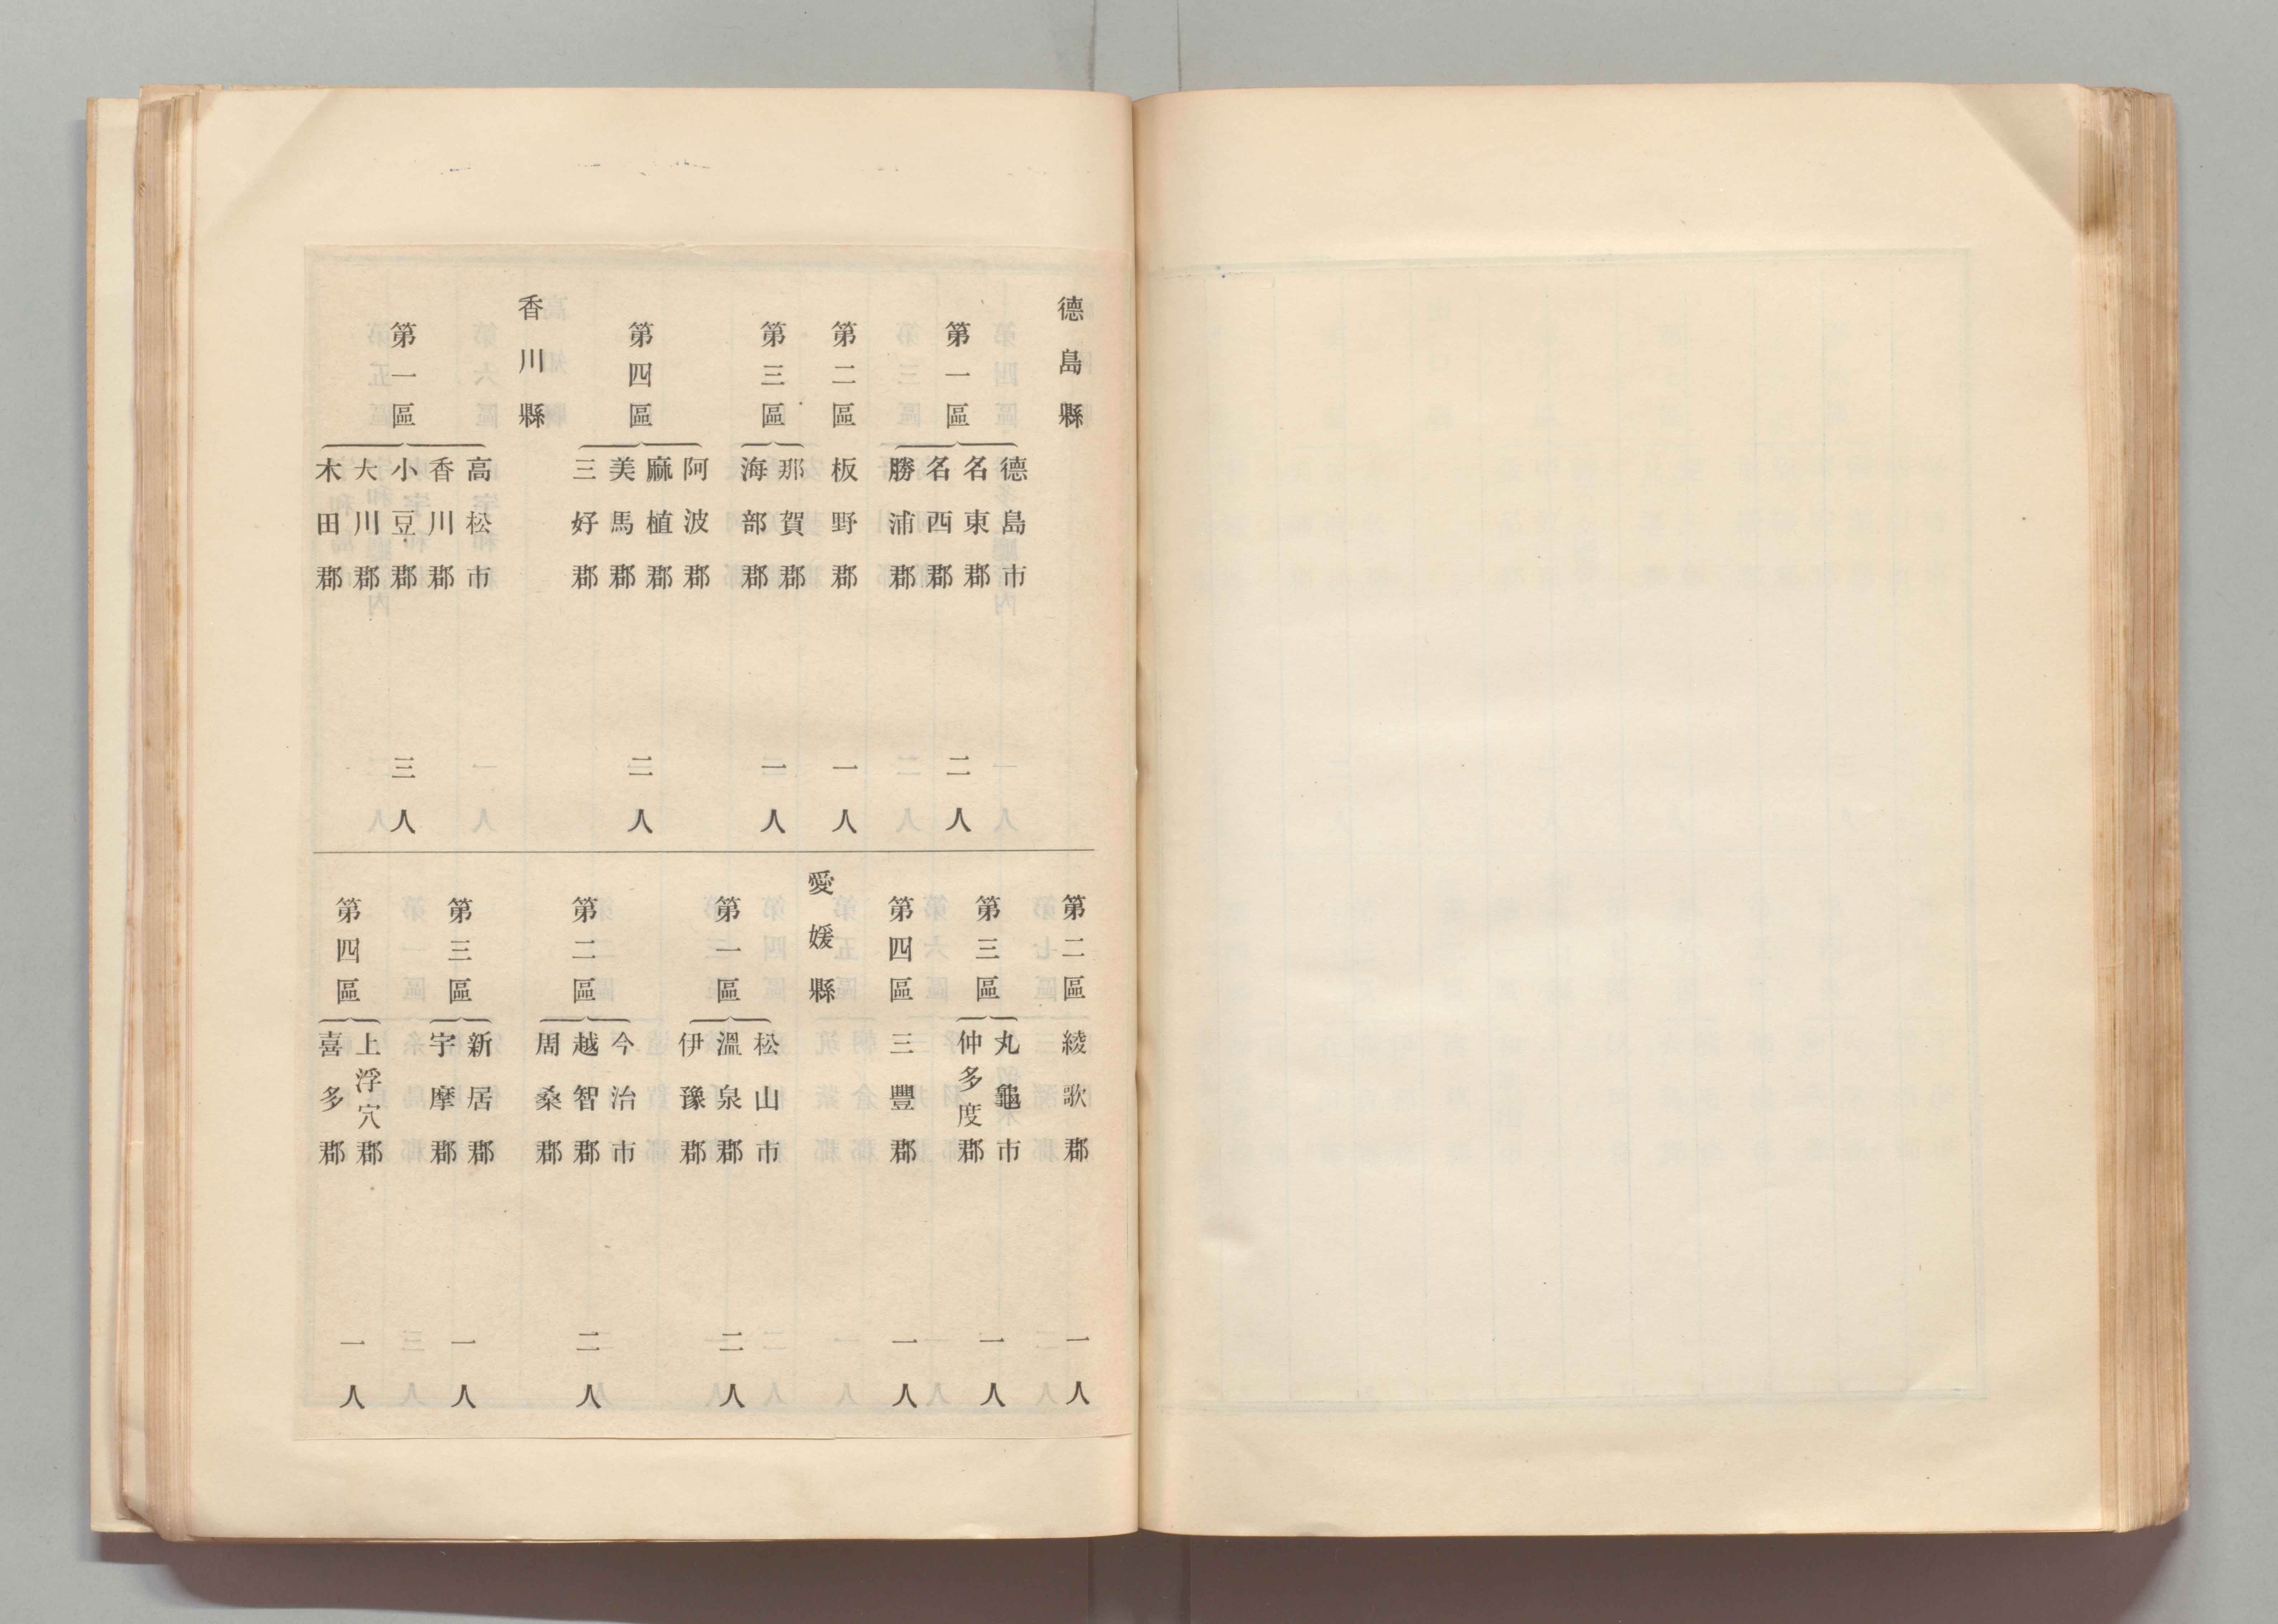 德島縣
第一區
德島市
名東郡
名西郡
勝浦郡
二人
第二區
板野郡
一人
第三區
那賀郡
海部郡
一人
第四區
阿波郡
麻植郡
美馬郡
三好郡
二人
香川縣
第一區
高松市
香川郡
小豆郡
大川郡
木田郡
三人
第二區
綾歌郡
一人
第三區
丸龜市
仲多度郡
一人
第四區
三豐郡
一人
愛媛縣
第一區
松山市
溫泉郡
伊豫郡
二人
第二區
今治市
越智郡
周桑郡
二人
第三區
新居郡
宇摩郡
一人
第四區
上浮穴郡
喜多郡
一人